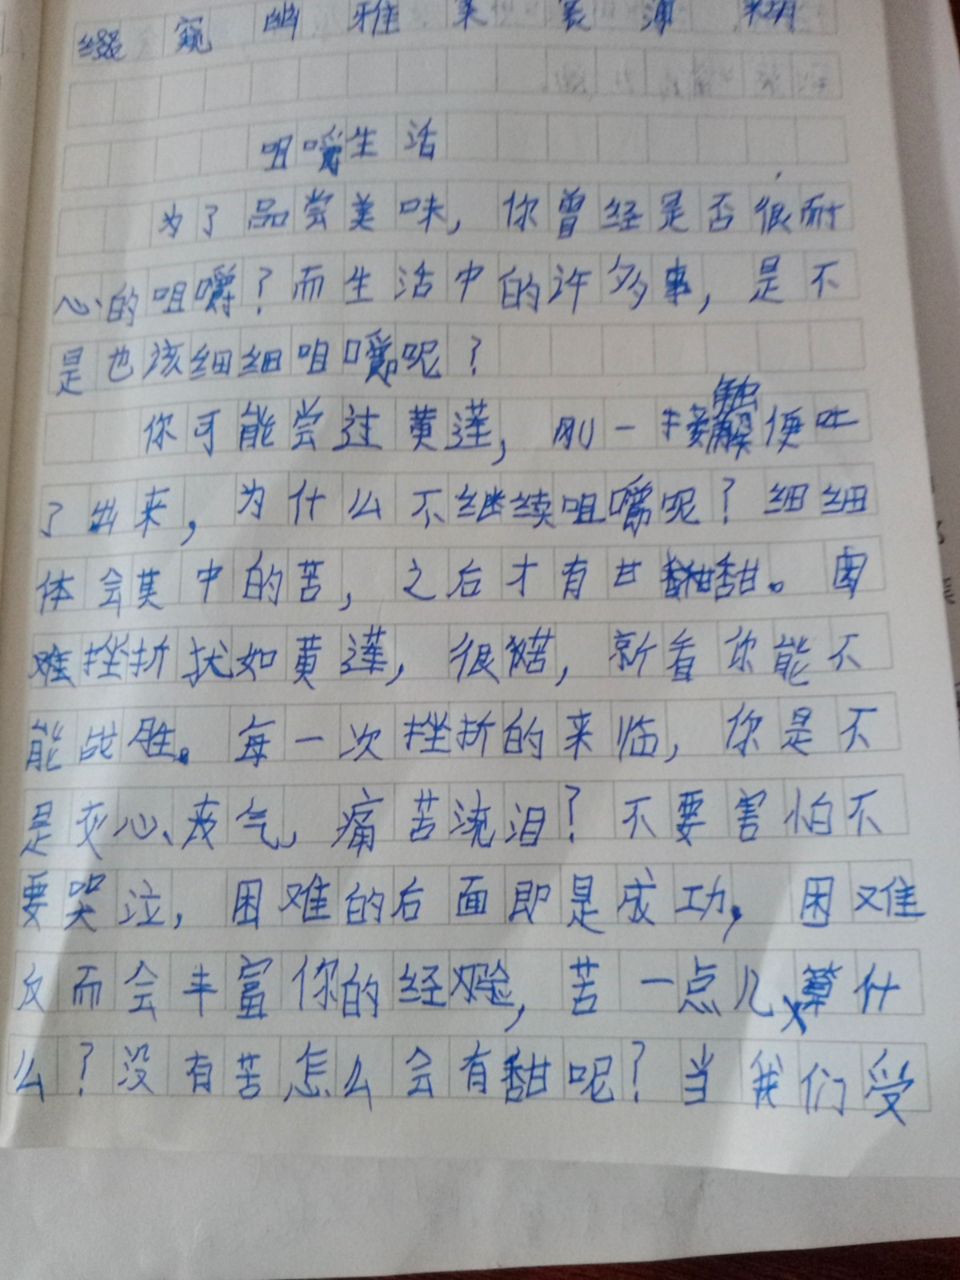 缀 窥 幽 雅
咀嚼生活
为了品尝美味，你曾经是否很耐
心的咀嚼？而生活中的许多事，是不
是也该细细咀嚼呢？
你可能尝过黄莲，刚一接触便吐
了出来，为什么不继续咀嚼呢？细细
体会其中的苦，之后才有甘甜。困
难挫折犹如黄莲，很苦，新看你能不
能战胜。每一次挫折的来临，你是不
是灰心、丧气、痛苦流泪？不要害怕不
要哭泣，困难的后面即是成功，困难
反而会丰富你的经验，苦一点儿算什
么？没有苦怎么会有甜呢？当我们受